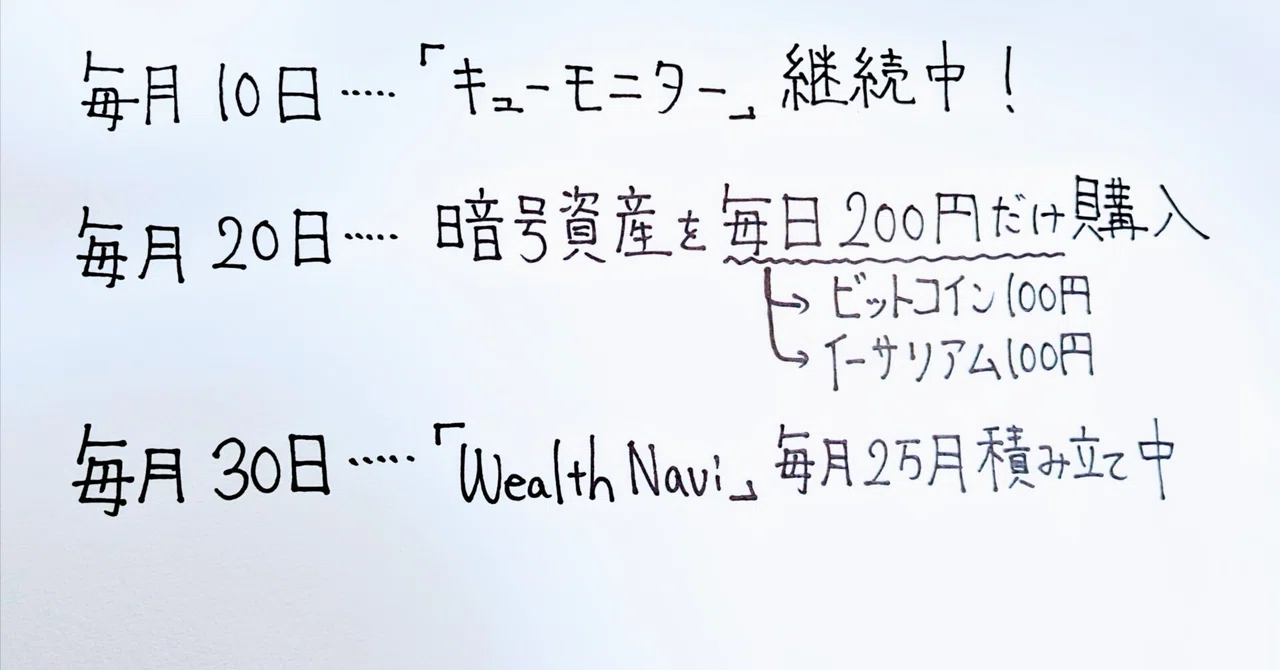 毎月10日……「キューモニター」継続中！
毎月20日……暗号資産を毎日200円だけ購入
→ビットコイン100円
→イーサリアム100円
毎月30日……「Wealth Navi」毎月25月積み立て中